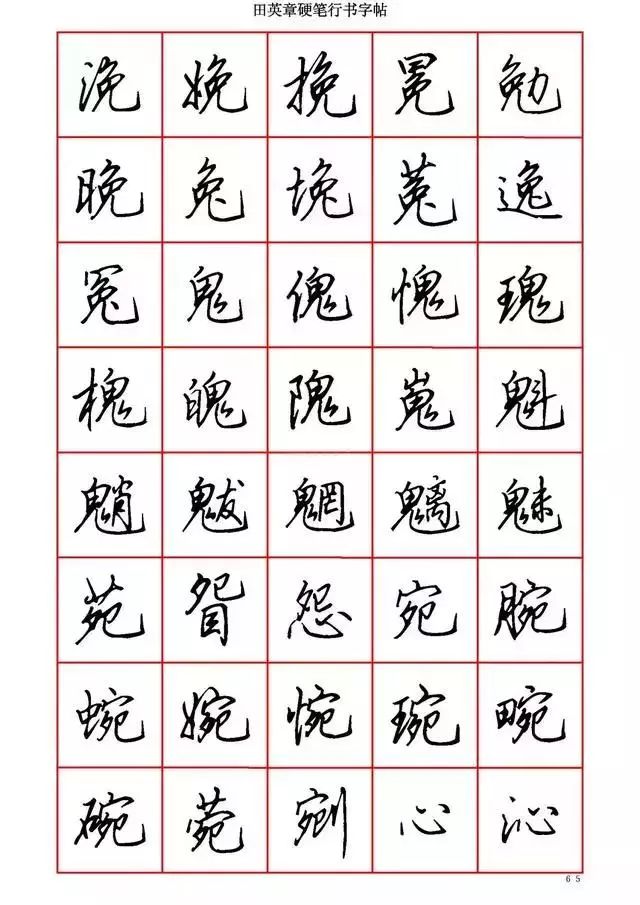 田英章硬笔行书字帖
浼娩挽冕勉
晚兔堍菟逸
冤鬼傀愧瑰
槐魄隗嵬魁
魈魃魍魑魅
苑眢怨宛腕
蜿婉惋琬畹
碗菀剜心沁
65